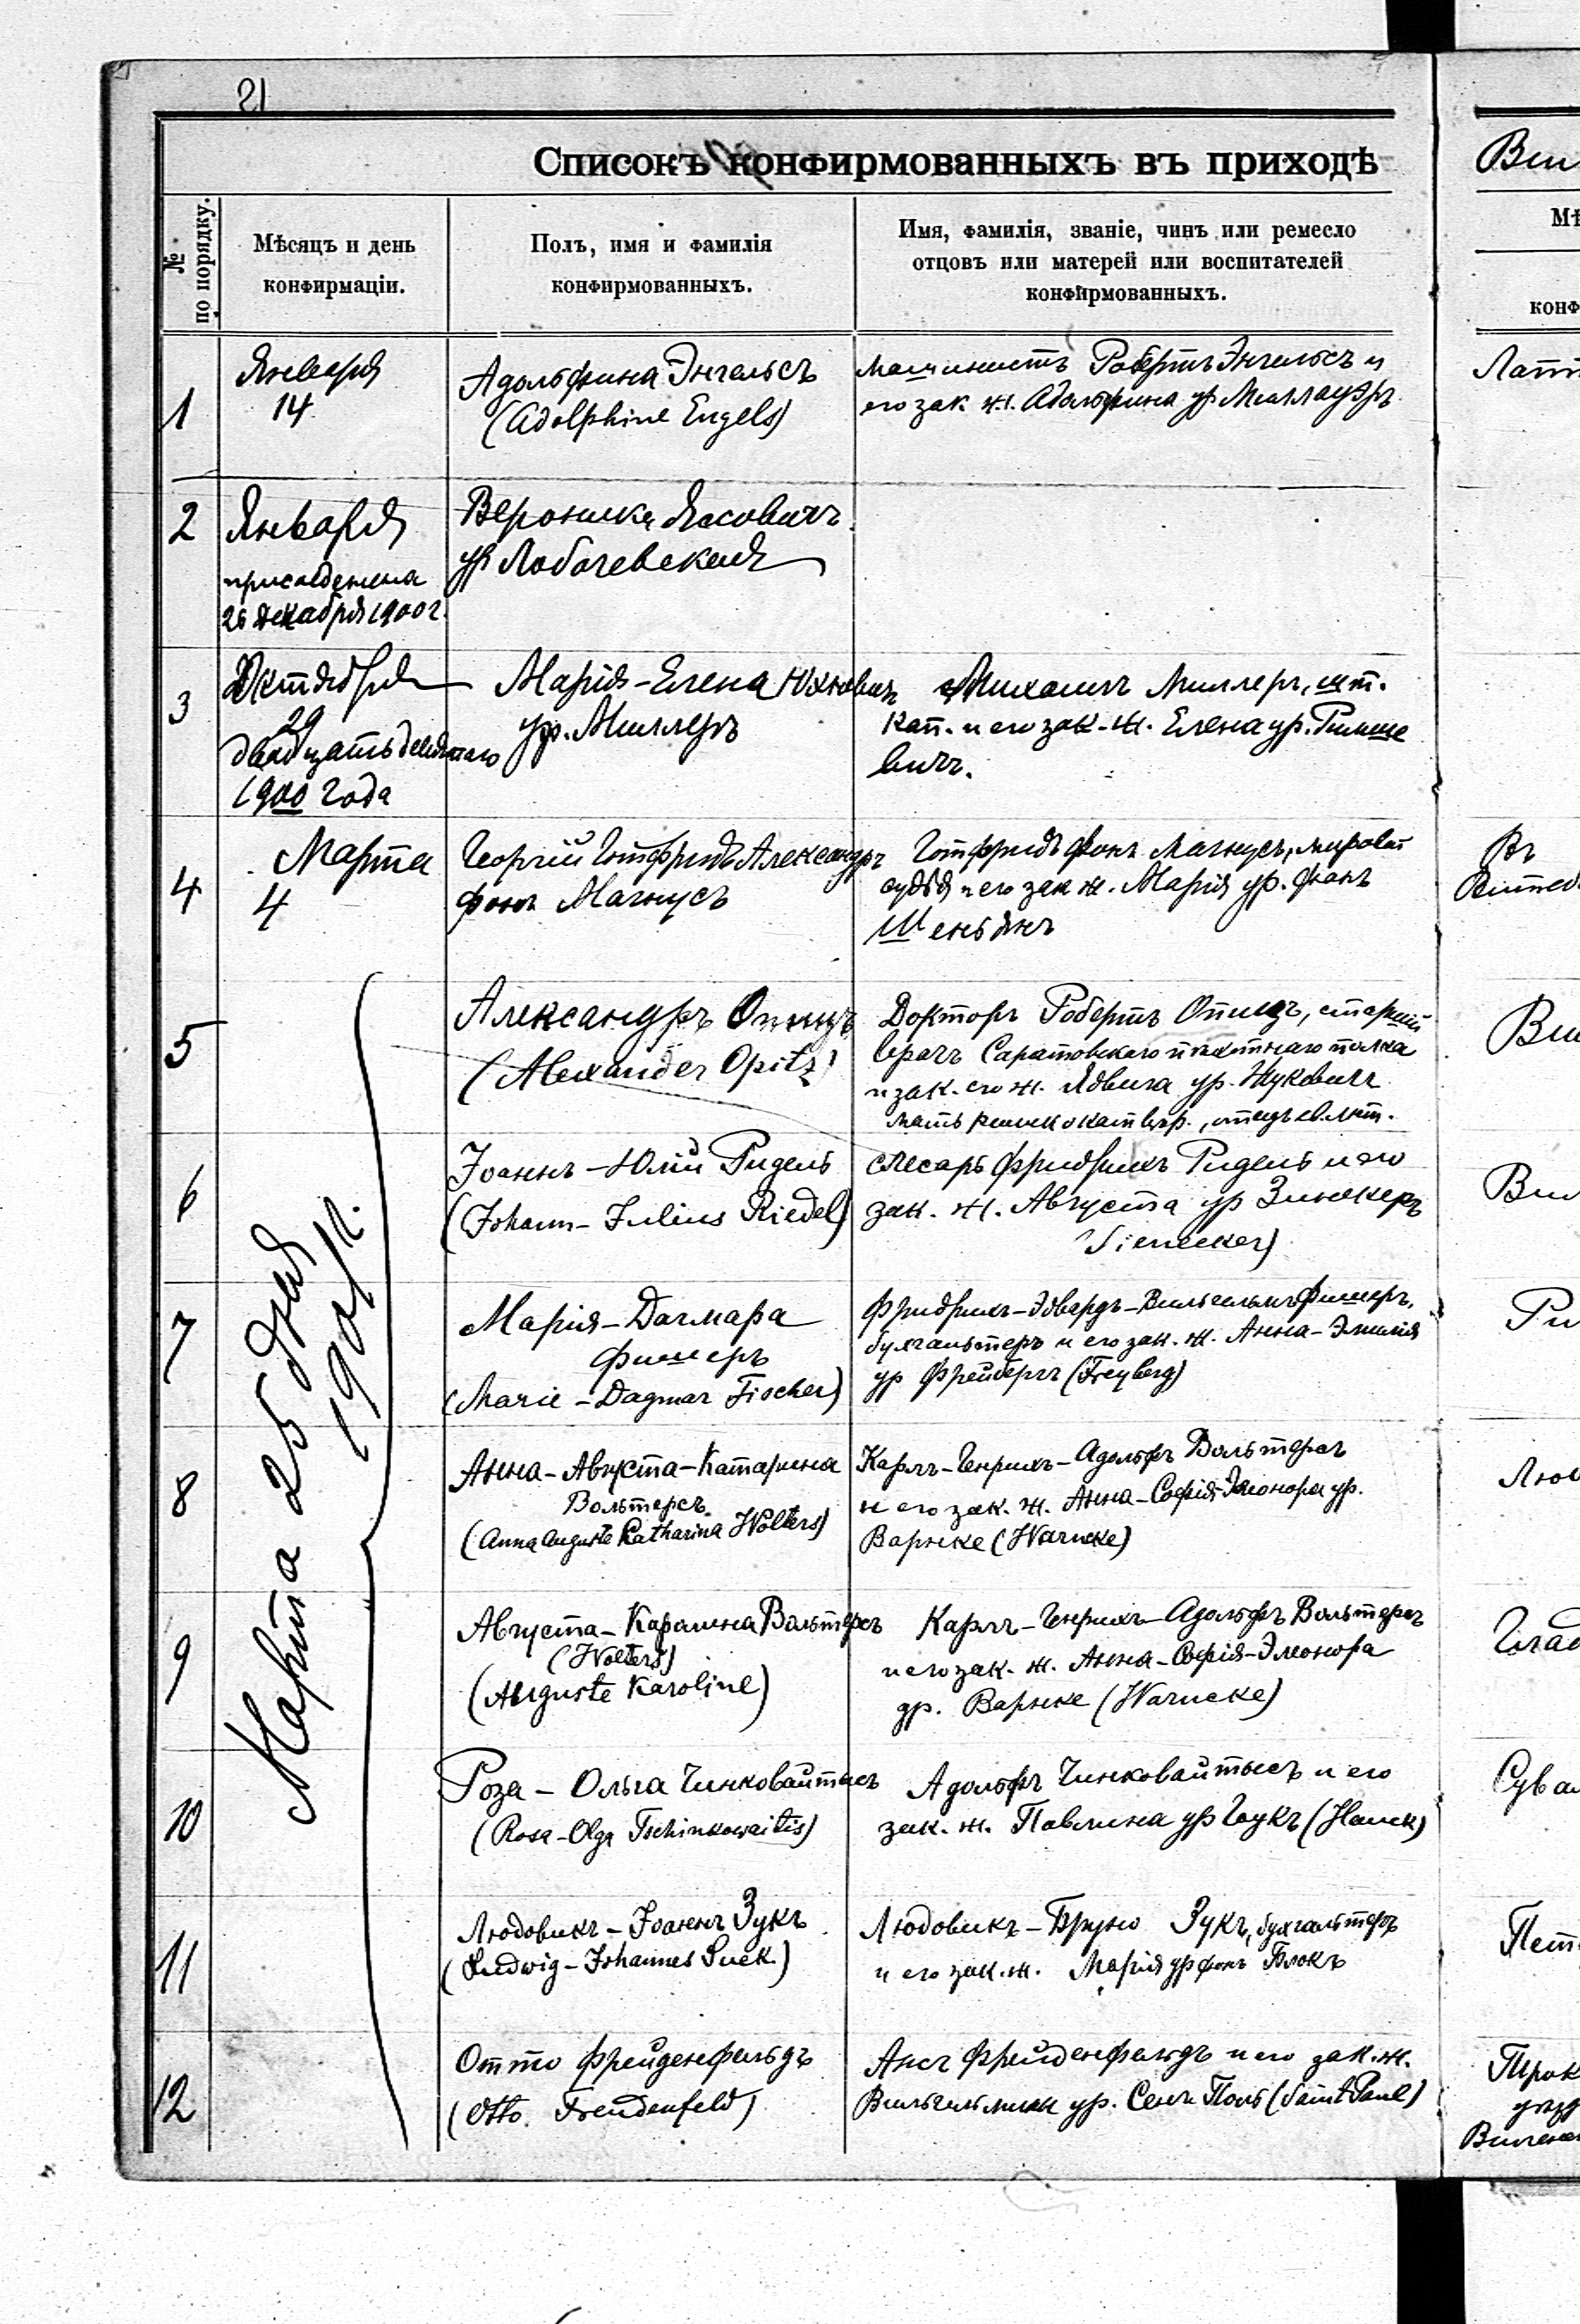 21
Списокъ конфирмованныхъ въ приходѣ
№ по порядку.
Мѣсяцъ и день
конфирмаціи.
Полъ, имя и фамилія
конфирмованныхъ.
Имя, фамилія, званіе, чинъ или ремесло
отцовъ или матерей или воспитателей
конфирмованныхъ.
1
Января
14
Адольфина Энгельсъ
(Adolphine Engels)
Машинистъ Робертъ Энгельсъ и
его зак. ж. Адольфина ур.
2
Января
присоединена
26 декабря 1900 г.
Вероника Ясовичъ
ур Лобачевская
3
Октября
29
двадцать девятаго
1900 года
Марія-Елена Юхневичъ
ур. Миллеръ
Михаилъ Миллеръ, шт.
кап. и его зак. ж. Елена ур. Римше
вичъ.
4
Марта
4
Георгій Готфридъ Александръ
фонъ Магнусъ
Готфридъ фонъ Магнусъ, мировой
судья и его зак ж. Марія ур. фонъ
Шеньянъ
Марта 25 дня
1901 г.
5
Александръ Опицъ
(Alexander Opitz)
Докторъ Робертъ Опицъ, старшій
врачъ Саратовскаго пѣхотнаго полка
и зак. его ж. Ядвига ур. Жуковичъ
мать римскокат вѣр., отецъ ев. лют.
6
Іоаннъ-Юлій Ридель
(Johann-Julius Riedel)
слесарь Фридрихъ Ридель и его
зак. ж. Августа ур Зинекеръ
(Sienecker)
7
Марія-Дагмара
Фишеръ
(Marie-Dagmar Fischer)
Фридрихъ-Эдвардъ-Вильгельмъ Фишеръ,
бухгальтеръ и его зак. ж. Анна-Эмилія
ур Фрейбергъ (Freyberg)
8
Анна-Августа-Катарина
Вольтерсъ
(Anna Auguste Katharina Wolters)
Карлъ-Генрихъ-Адольфъ Вольтерсъ
и его зак. ж. Анна-Софія-Элеонора ур.
Варнке (Warncke)
9
Августа-Каролина Вольтерсъ
(Wolters)
(Auguste Karoline)
Карлъ-Генрихъ-Адольфъ Вольтерсъ
и его зак. ж. Анна-Софія-Элеонора
ур. Варнке (Warncke)
10
Роза-Ольга Чинковайтысъ
(Rosa-Olga Tschinkowaitis)
Адольфъ Чинковайтысъ и его
зак. ж. Павлина ур Гаукъ (Hauck)
11
Людовикъ-Іоаннъ Зукъ
(Ludwig-Johannes Suck)
Людовикъ-Бруно Зукъ, бухгальтеръ
и его зак. ж. Марія ур фонъ Блокъ
12
Отто Фрейденфельдъ
(Otto Freudenfeld)
Ансъ Фрейденфельдъ и его зак. ж.
Вильгельмина ур. Сенъ Поль (Saint Paul)
Мѣ
конф
Вил
Латт
Въ
Витеб
Вил
Вил
Ри
Лю
Глад
Сувал
Пет
Трок
уѣзд
Виленс